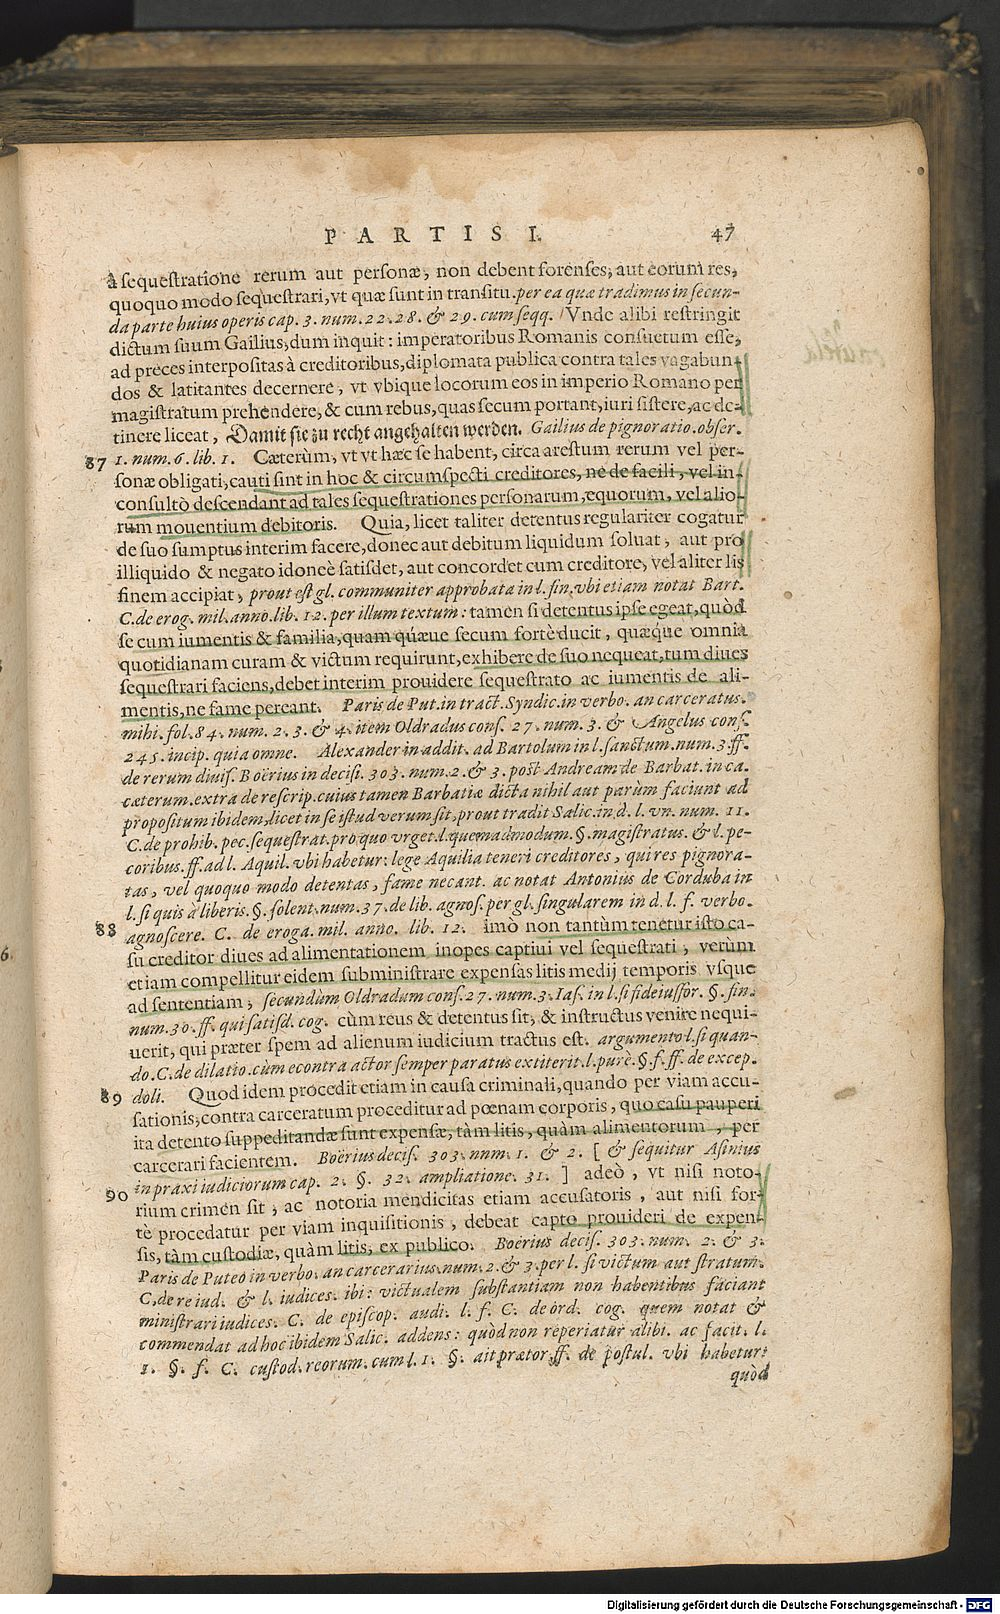 PARTIS I. 47
à sequestratione rerum aut personæ, non debent forenses, aut eorum res,
quoquo modo sequestrari, vt quæ sunt in transitu. per ea quæ tradimus in secun-
da parte huius operis cap. 3. num. 22. 28. & 29. cum seqq. Vnde alibi restringit
dictum suum Gailius, dum inquit: imperatoribus Romanis consuetum esse,
ad preces interpositas à creditoribus, diplomata publica contra tales vagabun-
dos & latitantes decernere, vt vbique locorum eos in imperio Romano per
magistratum prehendere, & cum rebus, quas secum portant, iuri sistere, ac de-
tinere liceat, Damit sie zu recht angehalten werden. Gailius de pignoratio. obser.
87 1. num. 6. lib. 1. Cæterùm, vt vt hæc se habent, circa arestum rerum vel per-
sonæ obligati, cauti sint in hoc & circumspecti creditores, ne de facili, vel in-
consultò descendant ad tales sequestrationes personarum, equorum, vel alio-
rum mouentium debitoris. Quia, licet taliter detentus regulariter cogatur
de suo sumptus interim facere, donec aut debitum liquidum soluat, aut pro
illiquido & negato idoneè satisdet, aut concordet cum creditore, vel aliter lis
finem accipiat, prout est gl. communiter approbata in l. fin. vbi etiam notat Bart.
C. de erog. mil. anno. lib. 12. per illum textum: tamen si detentus ipse egeat, quòd
se cum iumentis & familia, quam quáue secum fortè ducit, quæque omnia
quotidianam curam & victum requirunt, exhibere de suo nequeat, tum diues
sequestrari faciens, debet interim prouidere sequestrato ac iumentis de ali-
mentis, ne fame pereant. Paris de Put. in tract. Syndic. in verbo. an carceratus.
mihi. fol. 84. num. 2. 3. & 4. item Oldradus cons. 27. num. 3. & Angelus cons.
245. incip. quia omne. Alexander in addit. ad Bartolum in l. sanctum. num. 3. ff.
de rerum diuis. Boërius in decisi. 303. num. 2. & 3. post Andream de Barbat. in ca.
cæterum. extra de rescrip. cuius tamen Barbatiæ dicta nihil aut parùm faciunt ad
propositum ibidem, licet in se istud verum sit, prout tradit Salic. in d. l. vn. num. 11.
C. de prohib. pec. sequestrat. pro quo vrget. l. quemadmodum. §. magistratus. & l. pe-
coribus. ff. ad l. Aquil. vbi habetur: lege Aquilia teneri creditores, qui res pignora-
tas, vel quoquo modo detentas, fame necant. ac notat Antonius de Corduba in
l. si quis à liberis. §. solent. num. 37. de lib. agnos. per gl. singularem in d. l. f. verbo.
88 agnoscere. C. de eroga. mil. anno. lib. 12. imò non tantùm tenetur isto ca-
su creditor diues ad alimentationem inopes captiui vel sequestrati, verùm
etiam compellitur eidem subministrare expensas litis medij temporis vsque
ad sententiam, secundùm Oldradum cons. 27. num. 3. Ias. in l. si fideiussor. §. fin.
num. 30. ff. qui satisd. cog. cùm reus & detentus sit, & instructus venire nequi-
uerit, qui præter spem ad alienum iudicium tractus est. argumento l. si quan-
do. C. de dilatio. cum econtra actor semper paratus extiterit. l. purè. §. f. ff. de excep.
89 doli. Quod idem procedit etiam in causa criminali, quando per viam accu-
sationis, contra carceratum proceditur ad pœnam corporis, quo casu pauperi
ita detento suppeditandæ sunt expensæ, tàm litis, quàm alimentorum, per
carcerari facientem. Boërius decis. 303. nnm. 1. & 2. [ & sequitur Asinius
in praxi iudiciorum cap. 2. §. 32. ampliatione. 31. ] adeò, vt nisi noto-
90 rium crimen sit, ac notoria mendicitas etiam accusatoris, aut nisi for-
tè procedatur per viam inquisitionis, debeat capto prouideri de expen-
sis, tàm custodiæ, quàm litis, ex publico. Boërius decis. 303. num. 2. & 3.
Paris de Puteo in verbo. an carcerarius. num. 2. & 3. per l. si victum aut stratum.
C. de re iud. & l. iudices. ibi: victualem substantiam non habentibus faciant
ministrari iudices. C. de episcop. audi. l. f. C. de ord. cog. quem notat &
commendat ad hoc ibidem Salic. addens: quòd non reperiatur alibi. ac facit. l.
1. §. f. C. custod. reorum. cum l. 1. §. ait prætor. ff. de postul. vbi habetur:
quòd
Digitalisierung gefördert durch die Deutsche Forschungsgemeinschaft - DFG